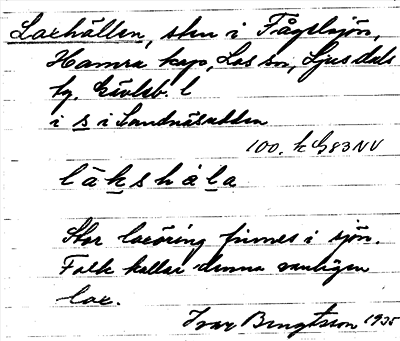 Laxhällen, sten i Fågelsjön,
Hamra kap, Los sn, Ljusdals
tg. Gävleb. l
i s i Sandnäsudden
100. k 83 NV
l ä k s h ä l a
Stor laxöring finnes i sjön.
Folk kallar denna vanligen
lax.
Ivar Bengtsson 1935